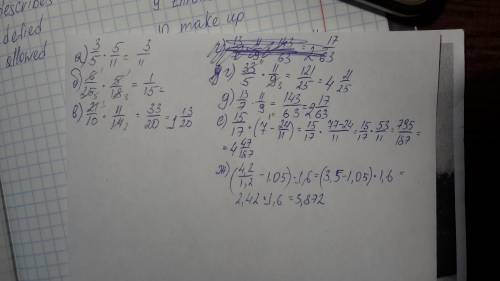 describes
defied
allowed
y
in make up
а) 3/5 · 5/11 = 3/11
б) 6/25 · 5/18 = 1/15 =
в) 21/10 · 11/14 = 33/20 = 1 13/20
г) 33/5 · 11/9 = 121/25 = 4 21/25
д) 13/7 · 11/9 = 143/63 = 2 17/63
е) 15/17 · (7 - 24/11) = 15/17 · 77-24/11 = 15/17 · 53/11 = 795/187 =
= 4 47/187
ж) (4,2/1,2 - 1,05) · 1,6 = (3,5 - 1,05) · 1,6 =
2,42 · 1,6 = 3,872